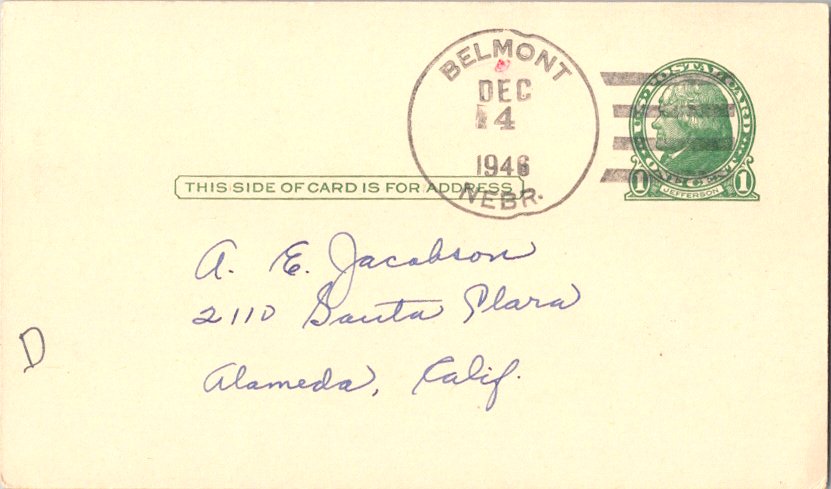 BELMONT
DEC
4
1946
NEBR.
U.S. POSTAL CARD
ONE CENT
1 JEFFERSON 1
THIS SIDE OF CARD IS FOR ADDRESS
A. E. Jacobson
2110 Santa Clara
Alameda, Calif.
D